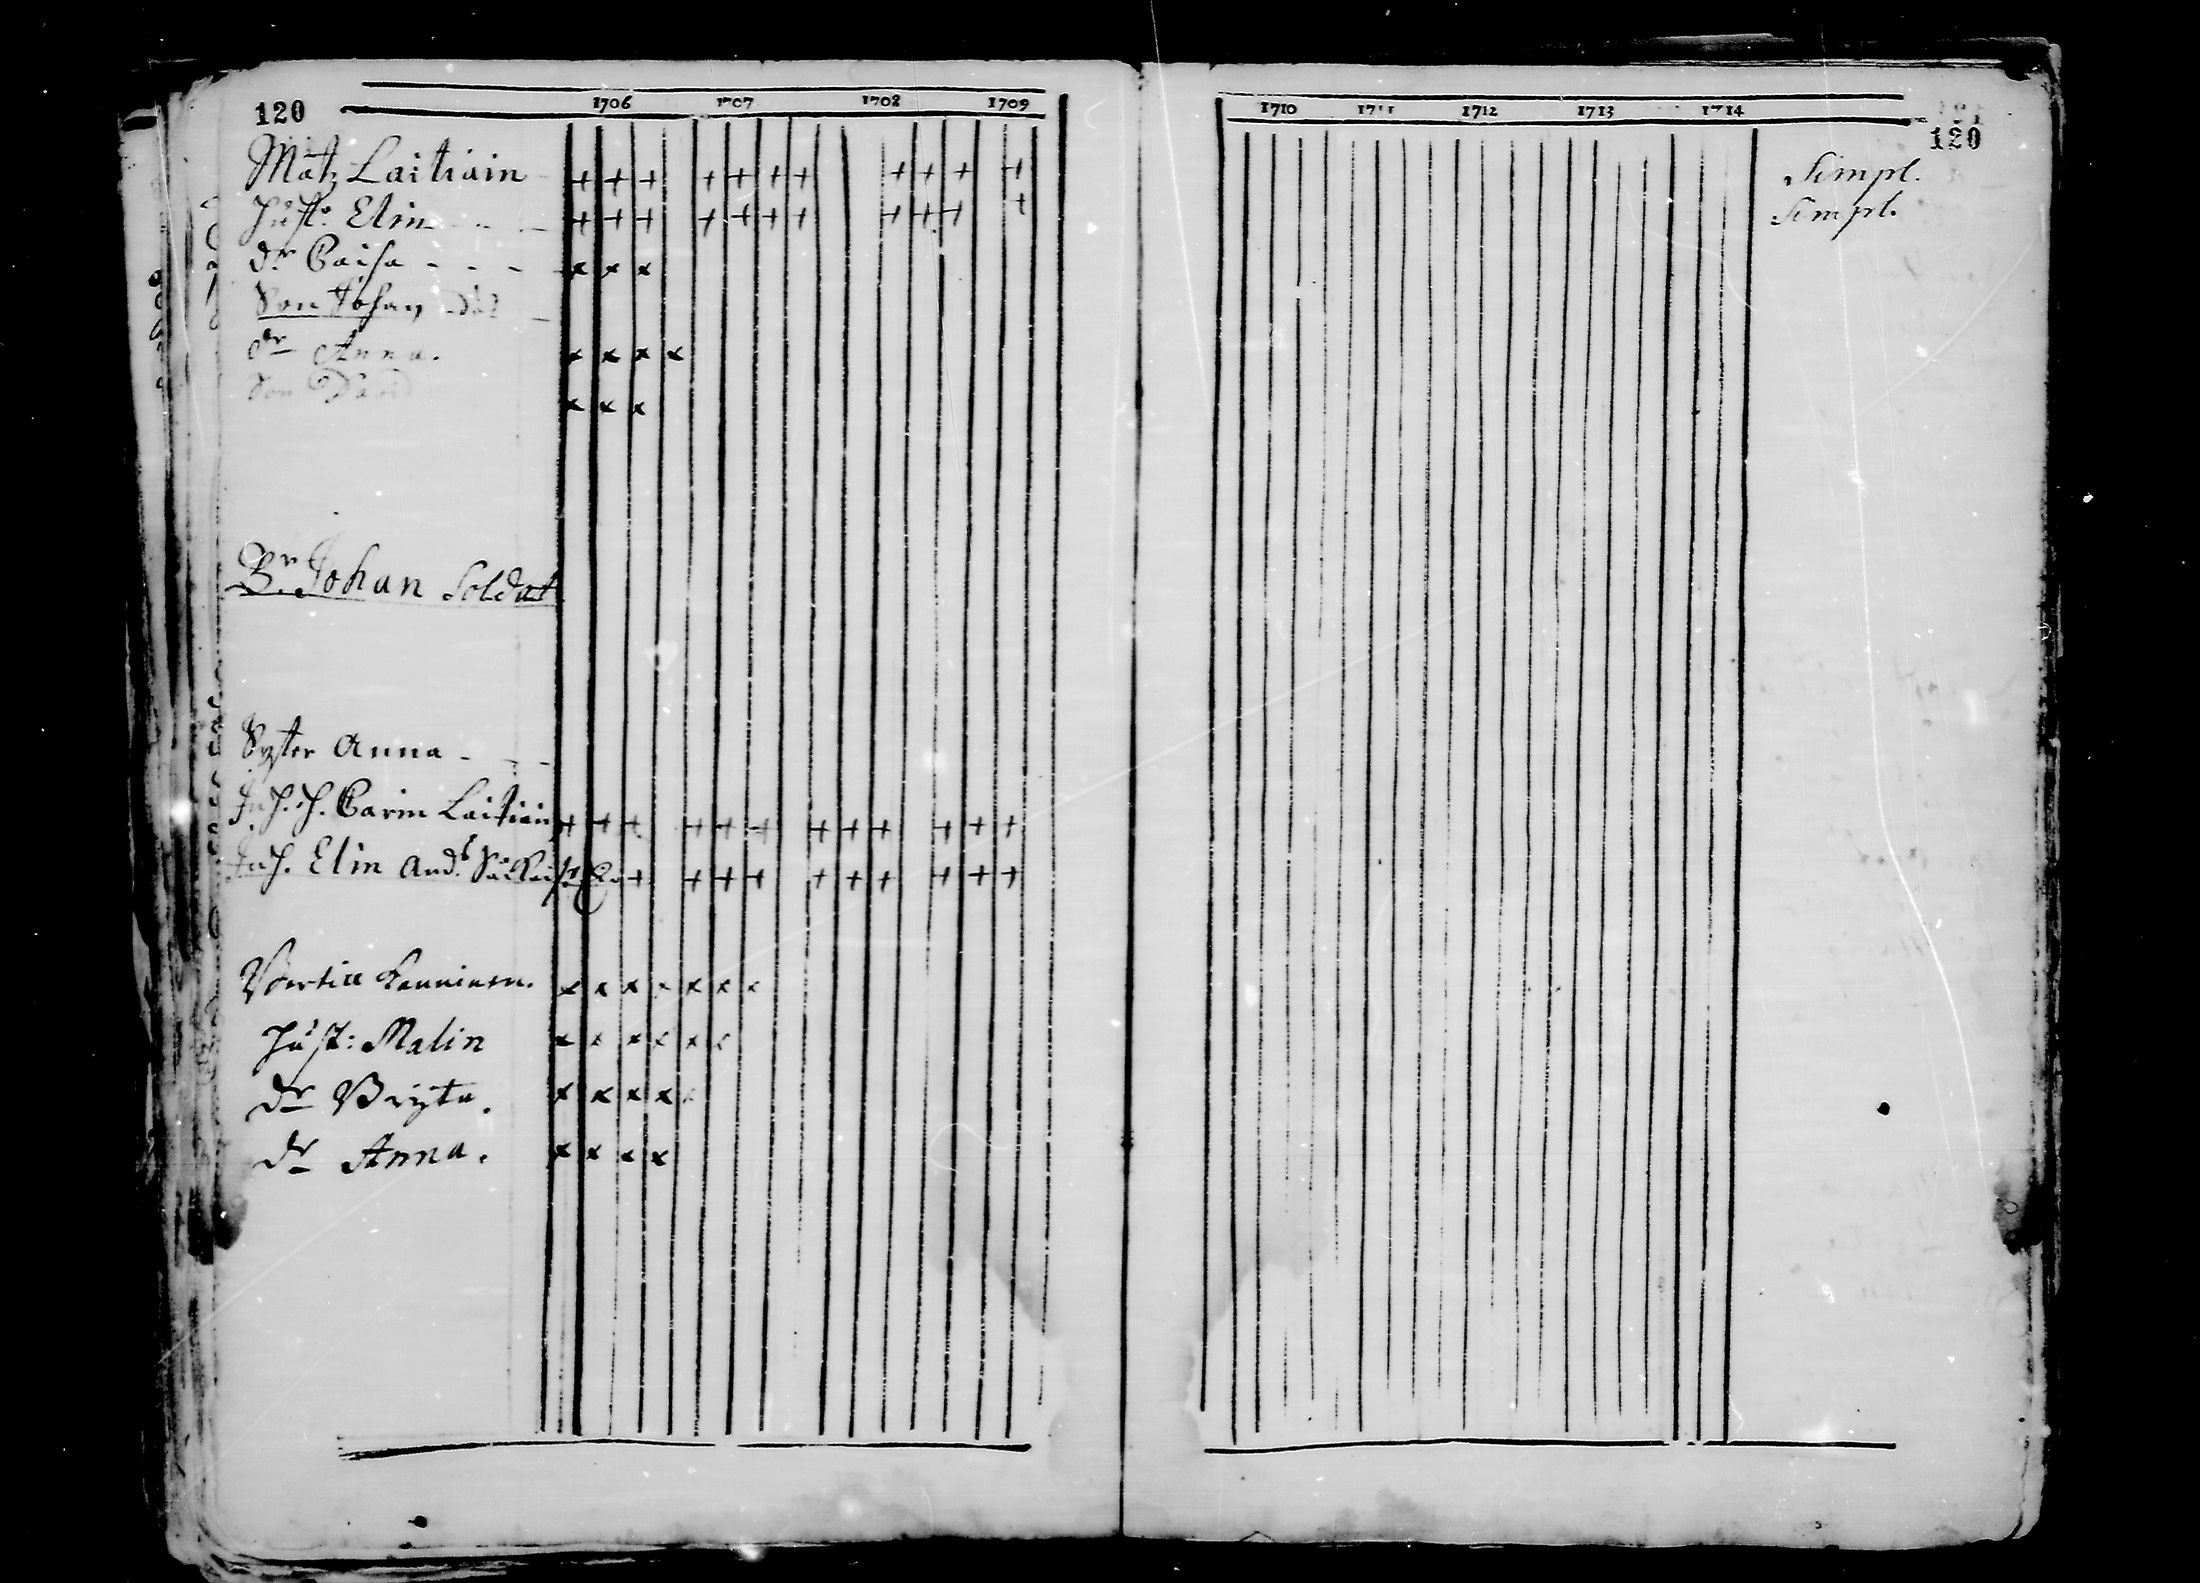 120
1706 1707 1708 1709
Matz Laitiain + + + + + + + + + + +
Hust: Elin + + + + + + + + + + +
dr Caisa - - - x x x
Son Johan
dr Anna. x x x x
Son David x x x
Br. Johan Soldat
Syster Anna - - -
Inh. H. Carin Laitiain + + + + + + + + + + + +
Inh. Elin And. + + + + + + + + + +
Bertill x x x x x x x
Hust: Malin x x x x x x
dr Brigta. x x x x x
dr Anna. x x x x
1710 1711 1712 1713 1714
120
Simpl.
Simpl.